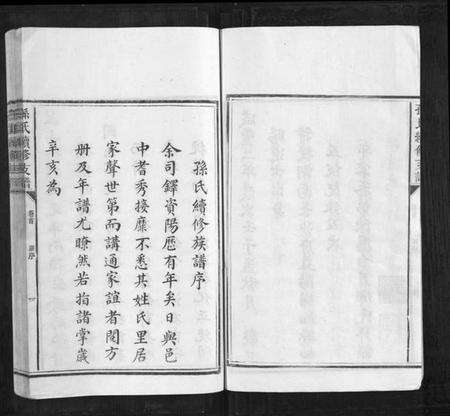 孫氏續修族譜序
余司鐸資陽歷有年矣日與邑
中耆秀接靡不悉其姓氏里居
家聲世第而講通家誼者閱方
册及年譜尤瞭然若指諸掌歲
辛亥為
孫氏續修支譜
卷首
譜序
一